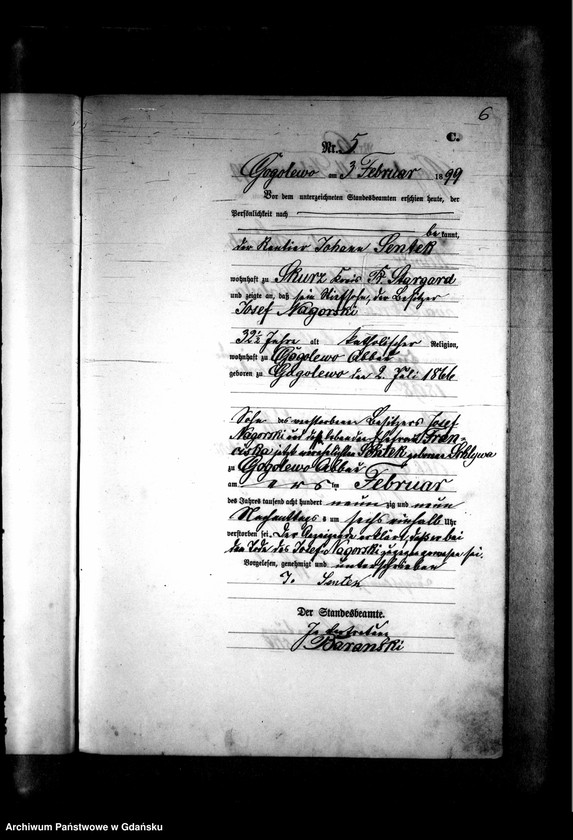 6
C.
Nr. 5
Gogolewo am 3 Februar 1899
Vor dem unterzeichneten Standesbeamten erschien heute, der
Persönlichkeit nach
be kannt,
der Rentier Johann Sentek
wohnhaft zu Skurz Kreis Pr. Stargard
und zeigte an, daß sein Stiefsohn, der Besitzer
Josef Nagorski
32½ Jahre alt katholischer Religion,
wohnhaft zu Gogolewo Abbau
geboren zu Gogolewo den 2. Juli 1866
Sohn des verstorbenen Besitzers Josef
Nagorski und dessen lebenden Ehefrau Fran-
ciska jetzt verehelichten Sentek geborenen
zu Gogolewo Abbau
am ers ten Februar
des Jahres tausend acht hundert neun zig und neun
Nachmittags um sechs einhalb Uhr
verstorben sei. Der Anzeigende erklärt, daß er bei
dem Tode des Josef Nagorski zugegen gewesen sei.
Vorgelesen, genehmigt und unterschrieben
J. Sentek
Der Standesbeamte.
In Vertretung
Baranski
Archiwum Państwowe w Gdańsku